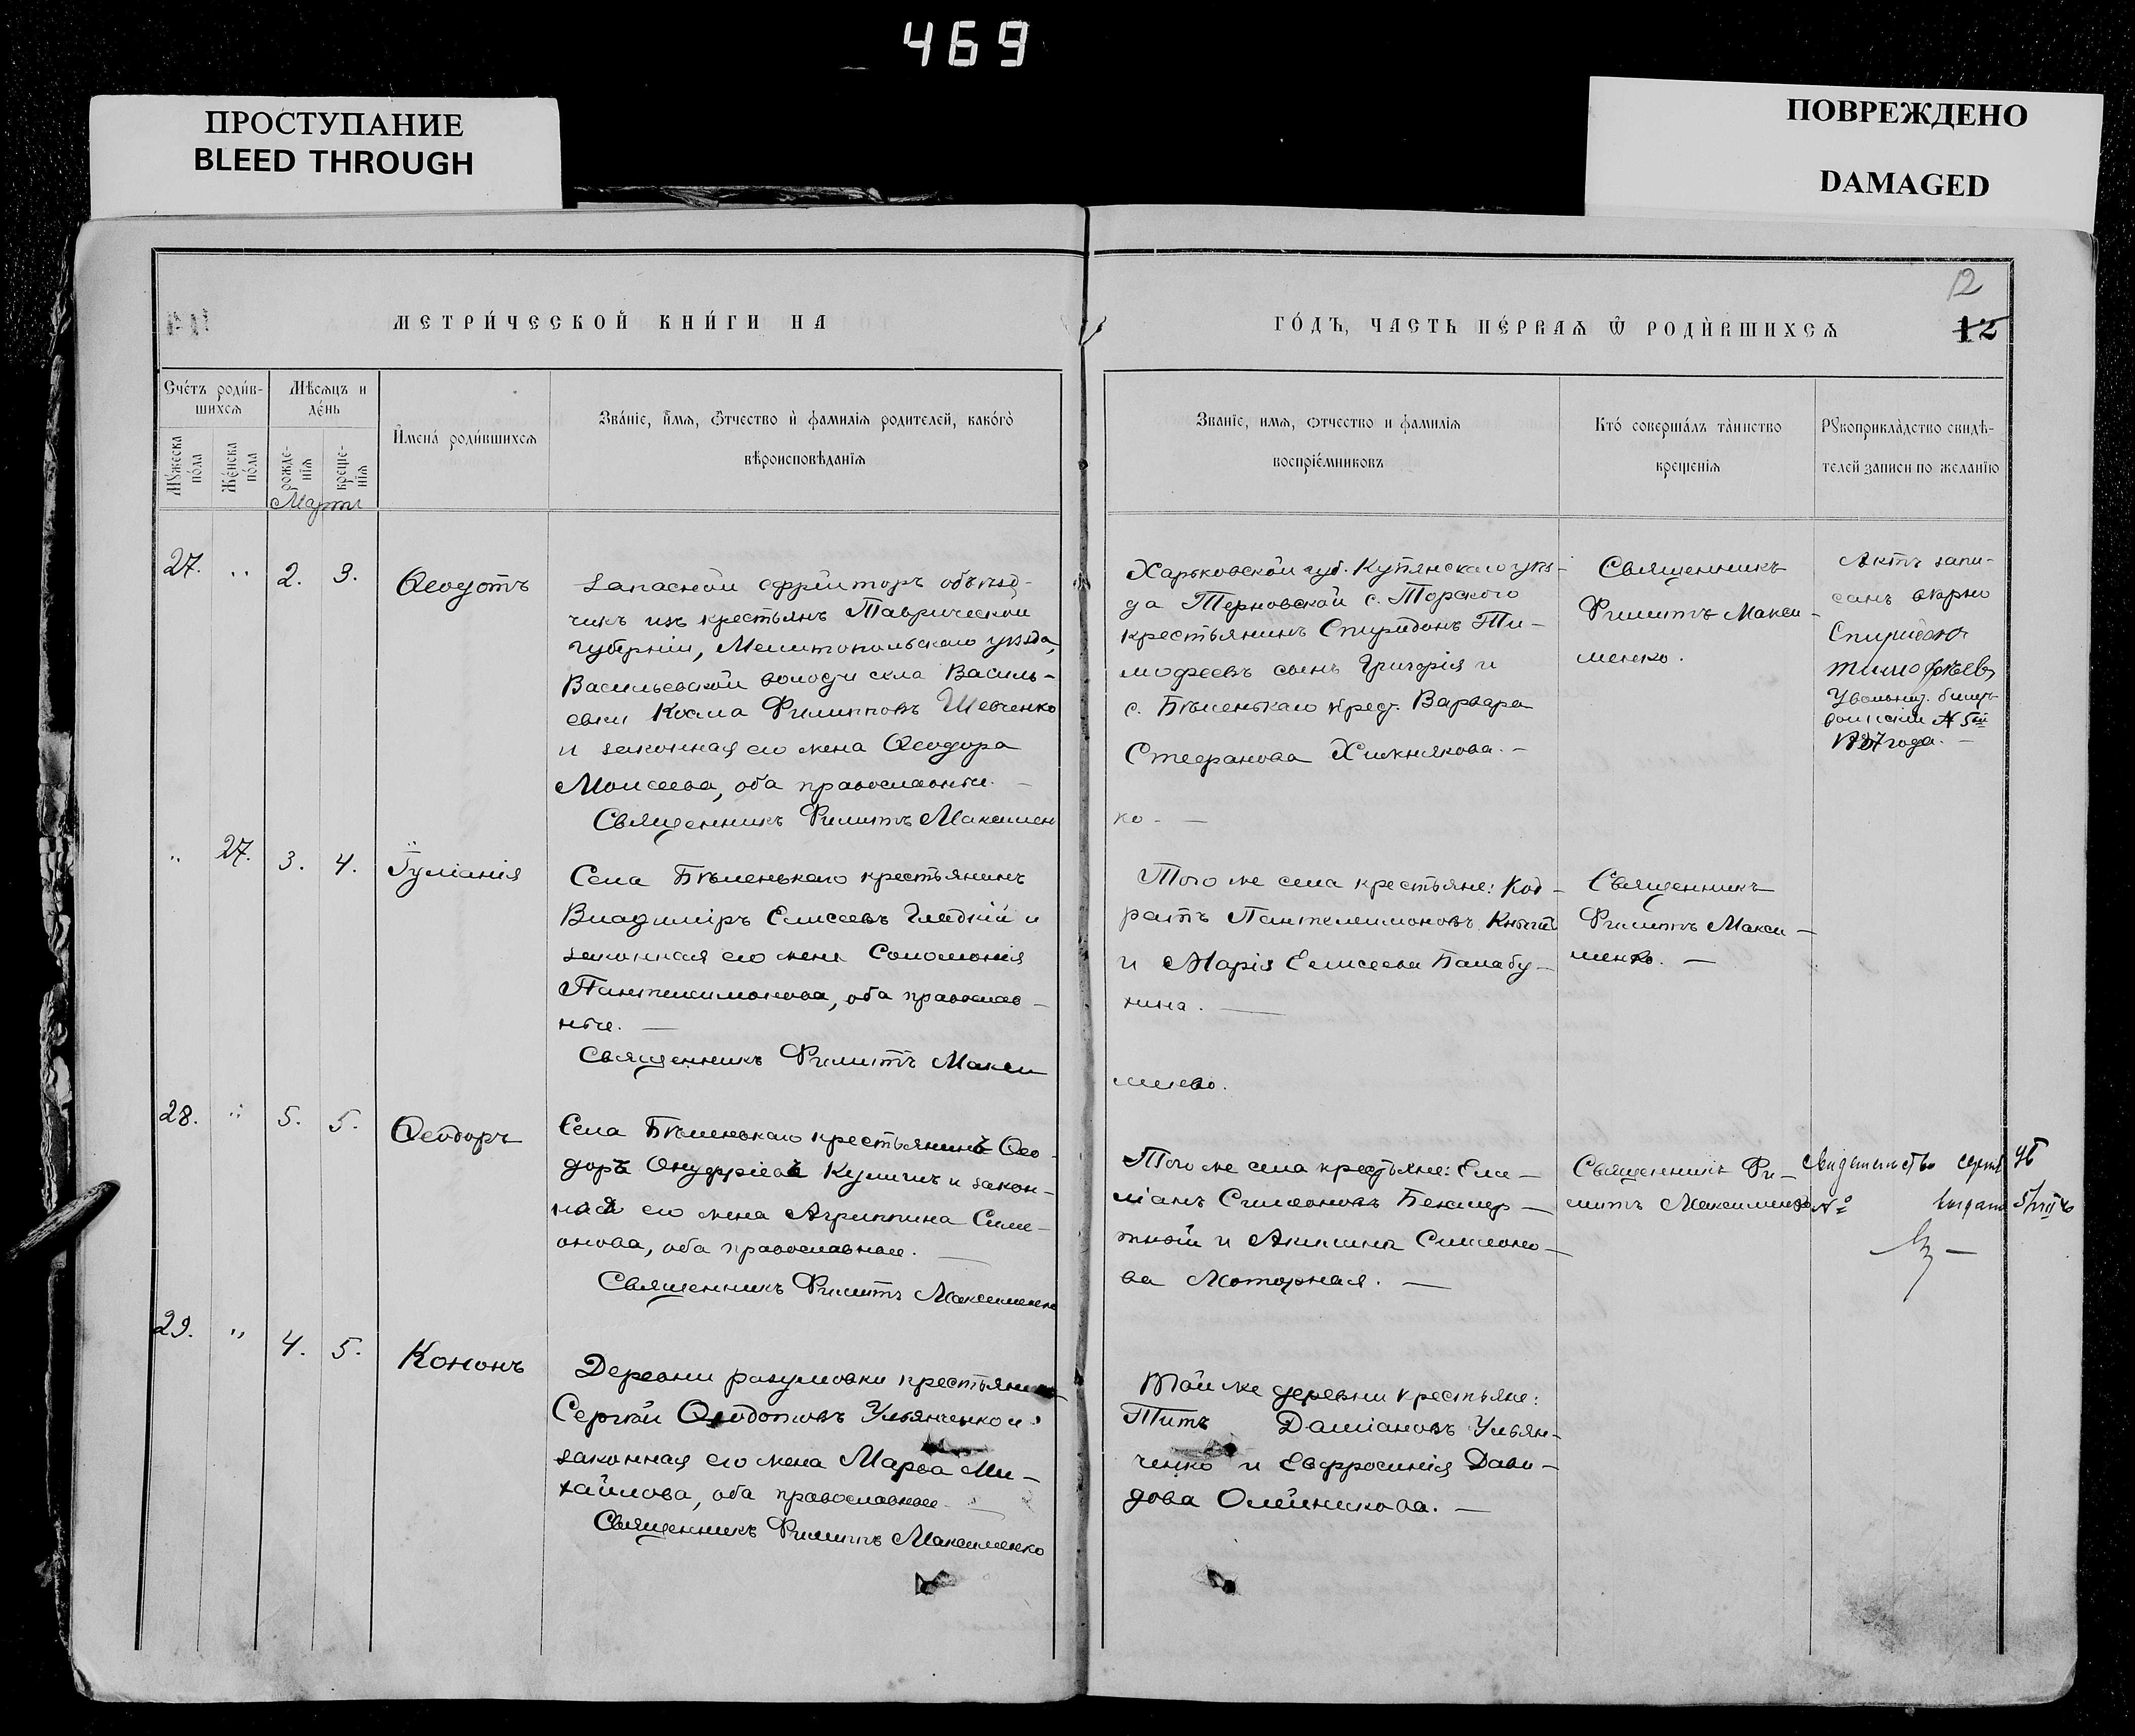 469
ПРОСТУПАНИЕ
BLEED THROUGH
ПОВРЕЖДЕНО
DAMAGED
12
МЕТРИ́ЧЕСКОЙ КНИ́ГИ НА
ГО́ДЪ, ЧАСТЬ ПЕ́РВАѦ Ѿ РОДИ́ВШИХСѦ
12
Сче́тъ роди́в-
шихсѧ
Мѣ́сѧцъ и
де́нь
Му́жеска
по́ла
Же́нска
по́ла
рожде-
нія
креще-
нія
И҆мена́ роди́вшихсѧ
Зва́ніе, и҆́мѧ, ѻ҆́тчество и҆ фамилія родителей, како́гѡ
вѣроисповѣданія
Званіе, имѧ, ѻтчество и фамилія
воспріе́мниковъ
Кто́ соверша́лъ та́инство
крещенія
Рꙋкоприкла́дство свидѣ-
телей записи по желанію
Мартъ
27.
"
2.
3.
Ѳеодотъ
Запасной ефрейторъ объѣзд-
чикъ изъ крестьянъ Таврической
губерніи, Мелитопольскаго уѣзда,
Васильевской волости села Василь-
евки Косма Филипповъ Шевченко
и законная его жена Ѳеодора
Моисеева, оба православные. —
Священникъ Филиппъ Максимен
ко. —
Харьковской губ. Купянскаго уѣз-
да Терновской с. Торского
крестьянинъ Спиридонъ Ти-
мофеевъ сынъ
с. Бѣленькаго Варвара
Стефанова Хижнякова. —
Священникъ
Филиппъ Макси-
менко.
Актъ запи-
санъ вѣрно
Спиридонъ
Тимофѣевъ
года. —
"
27.
3.
4.
Іуліанія
Села Бѣленькаго крестьянинъ
Владиміръ Елисеевъ Гладкій и
законная его жена Соломонія
Пантелеимонова, оба православ-
ные. —
Священникъ Филиппъ Макси
менко.
Того же села крестьяне: Код-
ратъ Пантелеимоновъ
и Марія Елисеева Балабу-
хина. —
Священникъ
Филиппъ Макси-
менко. —
28.
"
5.
5.
Ѳеодоръ
Села Бѣленькаго крестьянинъ Ѳео-
доръ Онуфріевъ Куличъ и закон-
ная его жена Агриппина Симе-
онова, оба православные. —
Священникъ Филиппъ Максименко
Того же села крестьяне: Еми-
ліанъ Симеоновъ
и Акилина Симеоно-
ва Моторная. —
Священникъ Фи-
липпъ Максименко
свидетельство
№ выдано
29.
"
4.
5.
Кононъ
Деревни Разумовки крестьянинъ
Сергѣй Ѳеодотовъ Ульянченко и
законная его жена Марѳа Ми-
хайлова, оба православные. —
Священникъ Филиппъ Максименко
Той же деревни крестьяне:
Титъ Даміановъ Ульян-
ченко и Евфросинія Дави-
дова Олейникова. —